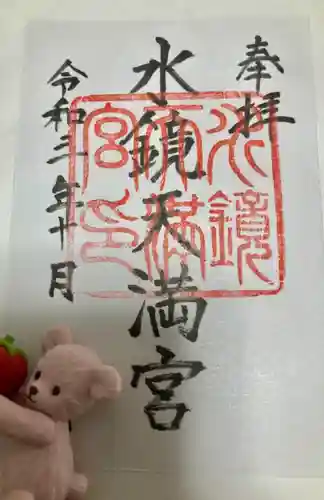 奉拝
水鏡天満宮
令和三年十月
水鏡
天満
宮印